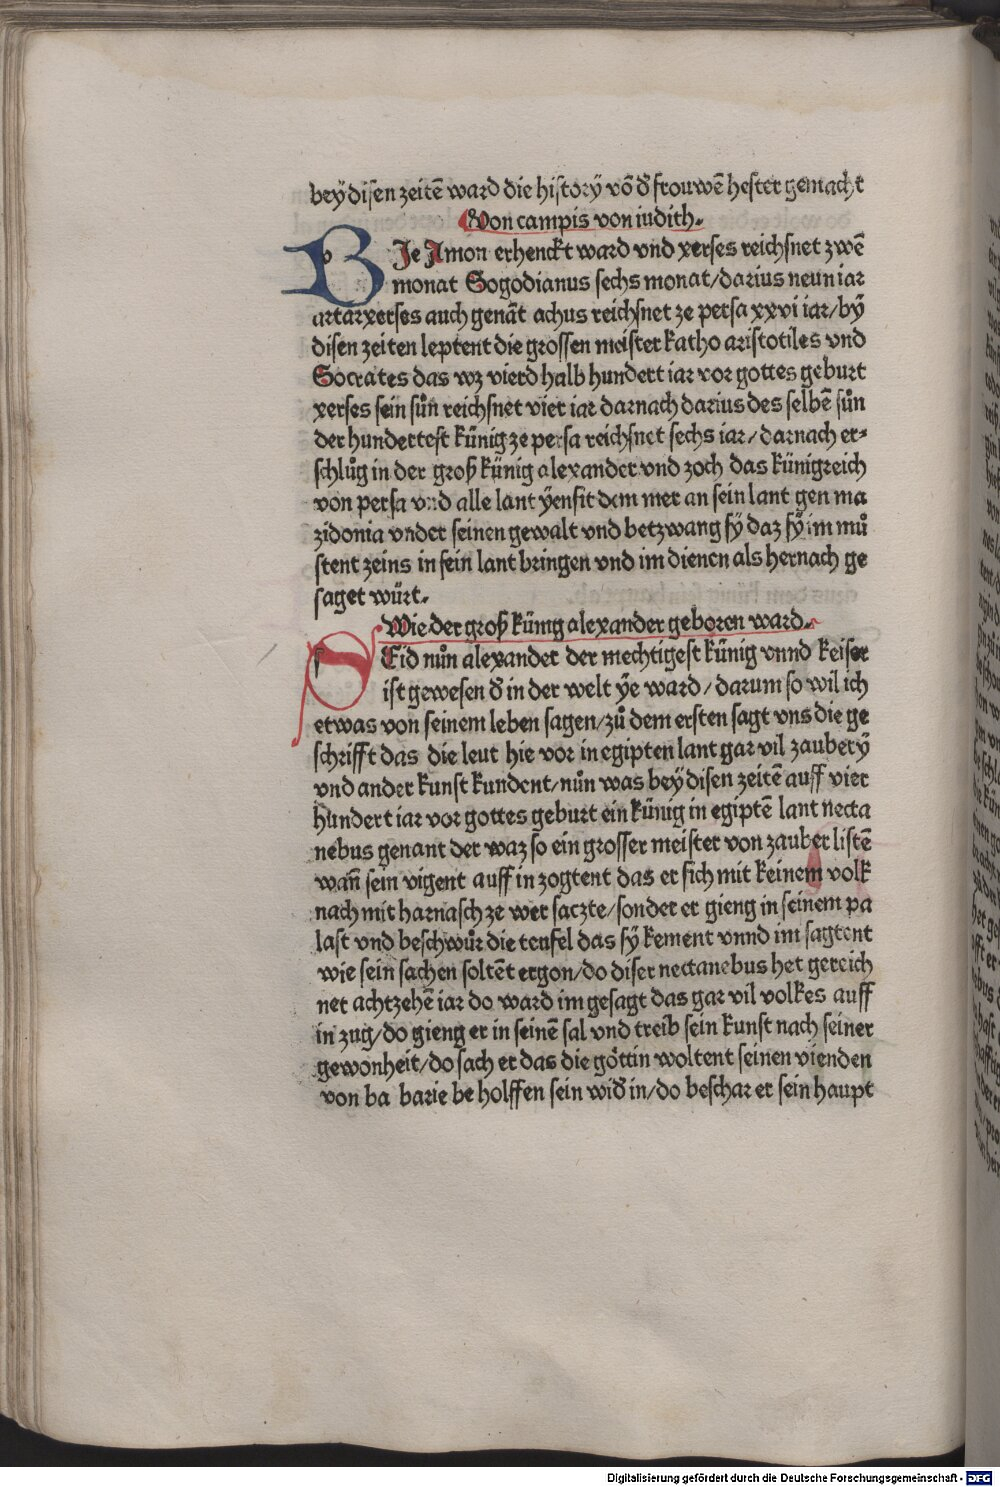 beÿ disen zeitē ward die historÿ vō ð frouwē hester gemacht
Von campis von iudith.
BJe Amon erhenckt ward vnd xerses reichsnet zwē
monat Sogodianus sechs monat/darius neun iar
artarxerses auch genāt achus reichsnet ze persa xxvi iar/bÿ
disen zeiten leptent die grossen meister katho aristotiles vnd
Socrates das wz vierd halb hundert iar vor gottes geburt
xerses sein sůn reichsnet vier iar darnach darius des selbē sůn
der hundertest künig ze persa reichsnet sechs iar/darnach er-
schlůg in der groß künig alexander vnd zoch das künigreich
von persa vnd alle lant ÿensit dem mer an sein lant gen ma
zidonia vnder seinen gewalt vnd betzwang sÿ daz sÿ im mů
stent zeins in sein lant bringen vnd im dienen als hernach ge
saget würt.
Wie der groß künig alexander geboren ward.
SEid nůn alexander der mechtigest künig vnnd keiser
ist gewesen ð in der welt ÿe ward/darum so wil ich
etwas von seinem leben sagen/zů dem ersten sagt vns die ge
schrifft das die leut hie vor in egipten lant gar vil zauberÿ
vnd ander kunst kundent/nůn was beÿ disen zeitē auff vier
hundert iar vor gottes geburt ein künig in egiptē lant necta
nebus genant der waz so ein grosser meister von zauber listē
wañ sein vigent auff in zogtent das er sich mit keinem volk
nach mit harnasch ze wer saczte/sonder er gieng in seinem pa
last vnd beschwůr die teufel das sÿ kement vnnd im sagtent
wie sein sachen soltēt ergon/do diser nectanebus het gereich
net achtzehē iar do ward im gesagt das gar vil volkes auff
in zug/do gieng er in seinē sal vnd treib sein kunst nach seiner
gewonheit/do sach er das die göttin woltent seinen vienden
von ba barie be holffen sein wið in/do beschar er sein haupt
Digitalisierung gefördert durch die Deutsche Forschungsgemeinschaft - DFG